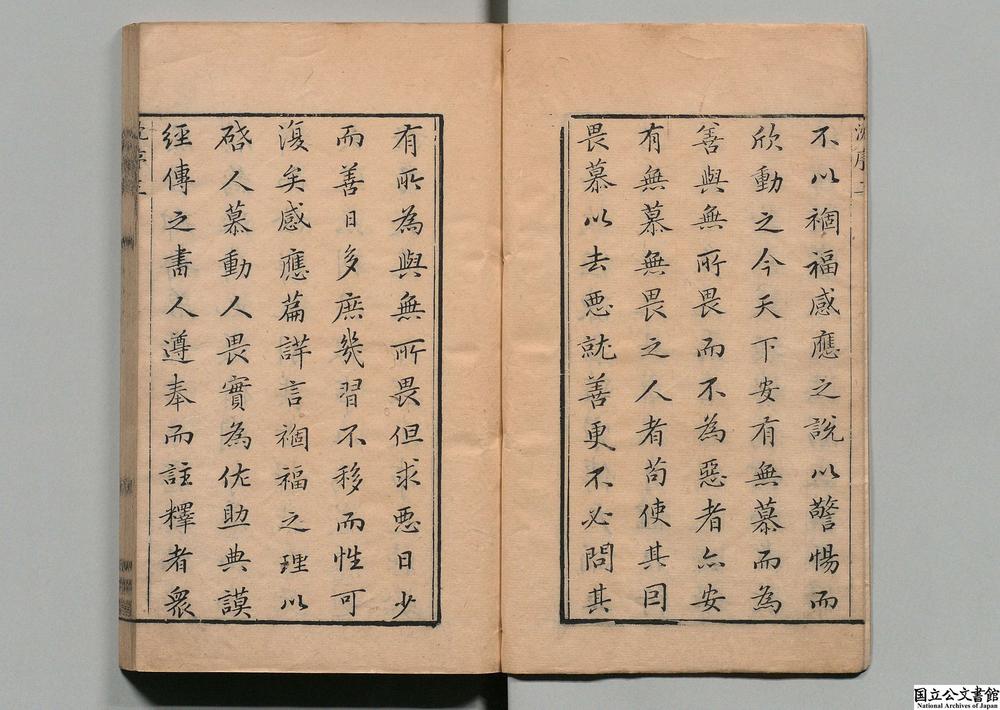 不以禍福感應之說以警惕而
欣動之今天下安有無慕而為
善與無所畏而不為惡者亦安
有無慕無畏之人者苟使其因
畏慕以去惡就善更不必問其
有所為與無所畏但求惡日少
而善日多庶幾習不移而性可
復矣感應篇詳言禍福之理以
啓人慕動人畏實為佐助典謨
經傳之書人遵奉而註釋者衆
国立公文書館
National Archives of Japan